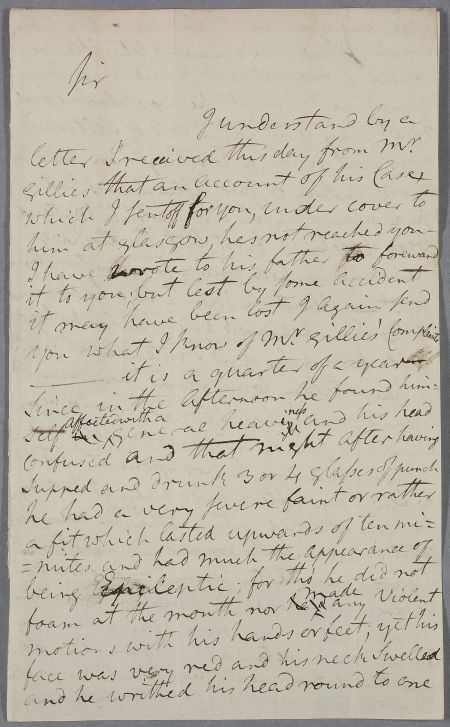 Sir
I understand by a
letter I received this day from Mr.
Gillies that an account of his Case,
which I sent off for you, under cover to
him at Glasgow, has not reached you
I have wrote to his father to foreward
it to you; but lest by some accident
it may have been lost I again send
you what I know of Mr. Gillies' Complaints
it is a quarter of a year
since in the afternoon he found him=
self affected with a general heaviness and his head
confused and that night after having
supped and drunk 3 or 4 glasses of punch
he had a very severe faint or rather
a fit which lasted upwards of ten mi=
=nites and had much the appearance of
being Epileptic: for tho he did not
foam at the mouth nor made any violent
motions with his hands or feet; yet his
face was very red and his neck swelled
and he writhed his head round to one